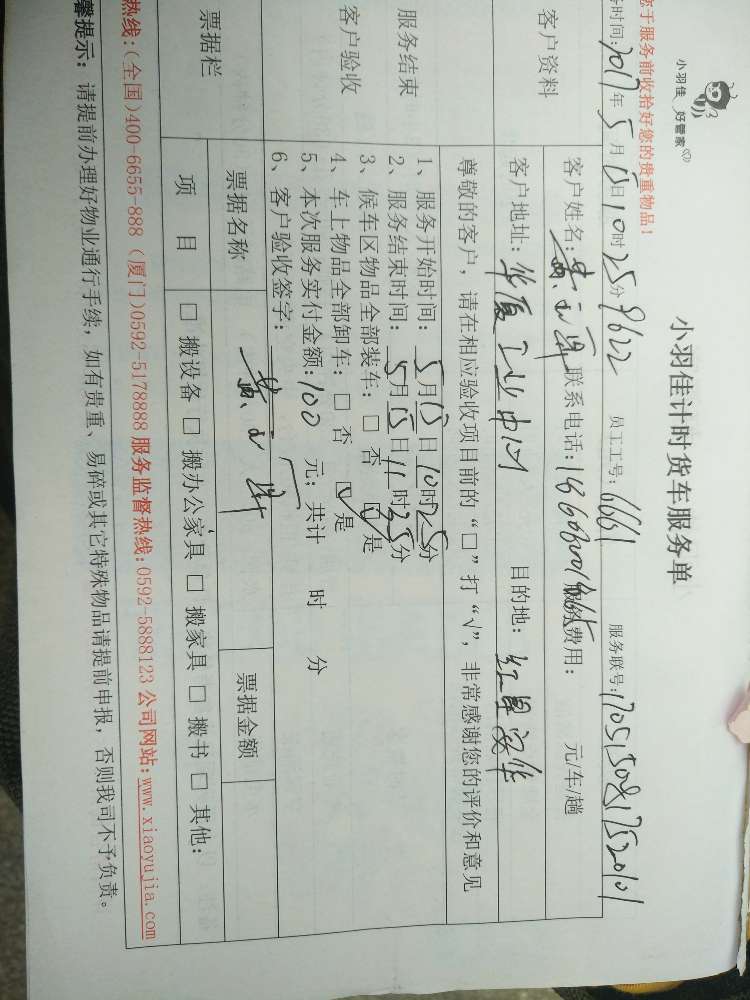 小羽佳 好管家
小羽佳计时货车服务单
您于服务前收拾好您的贵重物品！
时间：2017年5月15日10时25分 9622 员工工号：6661 服务联号：1705150817520101
客户资料
客户姓名： 联系电话： 服务费用： 元/车/趟
客户地址：华夏工业中心 目的地：红星
服务结束
客户验收
尊敬的客户，请在相应验收项目前的“□”打“√”，非常感谢您的评价和意见
1、服务开始时间：5月15日10时25分
2、服务结束时间：5月15日11时25分
3、候车区物品全部装车：□ 否 ☑ 是
4、车上物品全部卸车：□ 否 ☑ 是
5、本次服务实付金额：100 元；共计 时 分
6、客户验收签字：
票据栏
票据名称 票据金额
项 目 □ 搬设备 □ 搬办公家具 □ 搬家具 □ 搬书 □ 其他：
热线：(全国)400-6655-888 (厦门)0592-5178888 服务监督热线：0592-5888123 公司网站：www.xiaoyujia.com
馨提示：请提前办理好物业通行手续，如有贵重、易碎或其它特殊物品请提前申报，否则我司不予负责。